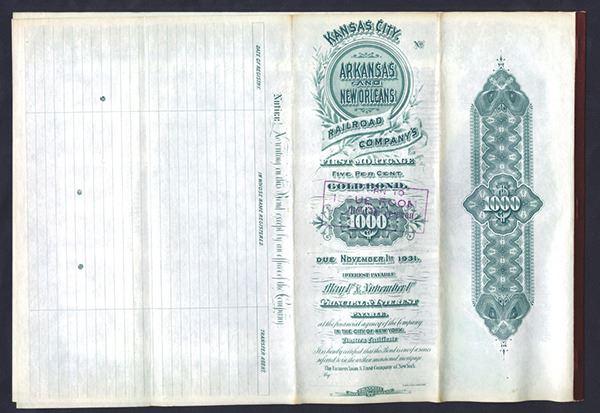 DATE OF REGISTRY.
IN WHOSE NAME REGISTERED.
TRANSFER AGENT.
Notice: No writing on this Bond except by an officer of the Company
KANSAS CITY,
No
ARKANSAS
AND
NEW ORLEANS
RAILROAD
COMPANY'S
FIRST MORTGAGE
FIVE PER CENT.
GOLD BOND.
ISSUE ROOM
1000
DUE NOVEMBER 1st 1931.
INTEREST PAYABLE
May 1st & November 1st
PRINCIPAL & INTEREST
PAYABLE
at the financial agency of the Company
IN THE CITY OF NEW YORK.
Trustees Certificate
It is hereby certified that this Bond is one of a series
referred to in the within mentioned mortgage.
The Farmers' Loan & Trust Company of New York.
By
$
1000